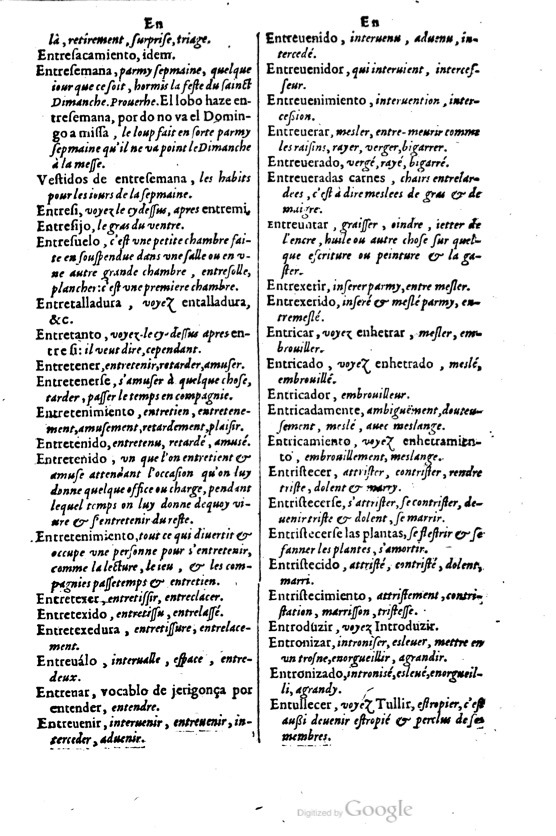 En
là, retirement, surprise, triage.
Entresacamiento, idem.
Entresemana, parmy sepmaine, quelque
iour que ce soit, hormis la feste du sainct
Dimanche. Prouerbe. El lobo haze en-
tresemana, por do no va el Domin-
go a missa, le loup fait en sorte parmy
sepmaine qu'il ne va point le Dimanche
à la messe.
Vestidos de entresemana, les habits
pour les iours de la sepmaine.
Entresi, voyez le cy dessus, apres entremi,
Entresijo, le gras du ventre.
Entresuelo, c'est vne petite chambre fai-
te en souspendue dans vne salle ou en v-
ne autre grande chambre, entresolle,
plancher: c'est vne premiere chambre.
Entretalladura, voyez entalladura,
&c.
Entretanto, voyez-le cy-dessus apres en-
tre si: il veut dire, cependant.
Entretener, entretenir, retarder, amuser.
Entretenerse, s'amuser à quelque chose,
tarder, passer le temps en compagnie.
Entretenimiento, entretien, entretene-
ment, amusement, retardement, plaisir.
Entretenido, entretenu, retardé, amusé.
Entretenido, vn que l'on entretient &
amuse attendant l'occasion qu'on luy
donne quelque office ou charge, pendant
lequel temps on luy donne dequoy vi-
ure & s'entretenir du reste.
Entretenimiento, tout ce qui diuertit &
occupe vne personne pour s'entretenir,
comme la lecture, le ieu, & les com-
pagnies passetemps & entretien.
Entretexer, entretissir, entreclacer.
Entretexido, entretissu, entrelassé.
Entretexedura, entretissure, entrelace-
ment.
Entreuálo, interualle, espace, entre-
deux.
Entrenar, vocablo de jerigonça por
entender, entendre.
Entreuenir, interuenir, entreuenir, in-
terceder, aduenir.
En
Entreuenido, interuenu, aduenu, in-
tercedé.
Entreuenidor, qui interuient, interces-
seur.
Entreuenimiento, interuention, inter-
cession.
Entreuerar, mesler, entre-meurir comme
les raisins, rayer, verger, bigarrer.
Entreuerado, vergé, rayé, bigarré.
Entreueradas carnes, chairs entrelar-
dees, c'est à dire meslees de gras & de
maigre.
Entreuntar, graisser, oindre, ietter de
l'encre, huile ou autre chose sur quel-
que escriture ou peinture & la ga-
ster.
Entrexerir, inserer parmy, entre mesler.
Entrexerido, inseré & meslé parmy, en-
tremeslé.
Entricar, voyez enhetrar, mesler, em-
brouiller.
Entricado, voyez enhetrado, meslé,
embrouillé.
Entricador, embrouilleur.
Entricadamente, ambiguëment, douteu-
sement, meslé, auec meslange.
Entricamiento, voyez enhetramien-
to, embrouillement, meslange.
Entristecer, attrister, contrister, rendre
triste, dolent & marry.
Entristecerse, s'attrister, se contrister, de-
uenir triste & dolent, se marrir.
Entristecerse las plantas, se flestrir & se
fanner les plantes, s'amortir.
Entristecido, attristé, contristé, dolent,
marri.
Entristecimiento, attristement, contri-
station, marrisson, tristesse.
Entroduzir, voyez Introduzir.
Entronizar, introniser, esleuer, mettre en
vn trosne, enorgueillir, agrandir.
Entronizado, intronisé, esleué, enorgueil-
li, agrandy.
Entullecer, voyez Tullir, estropier, c'est
aussi deuenir estropié & perclus de ses
membres.
Digitized by Google